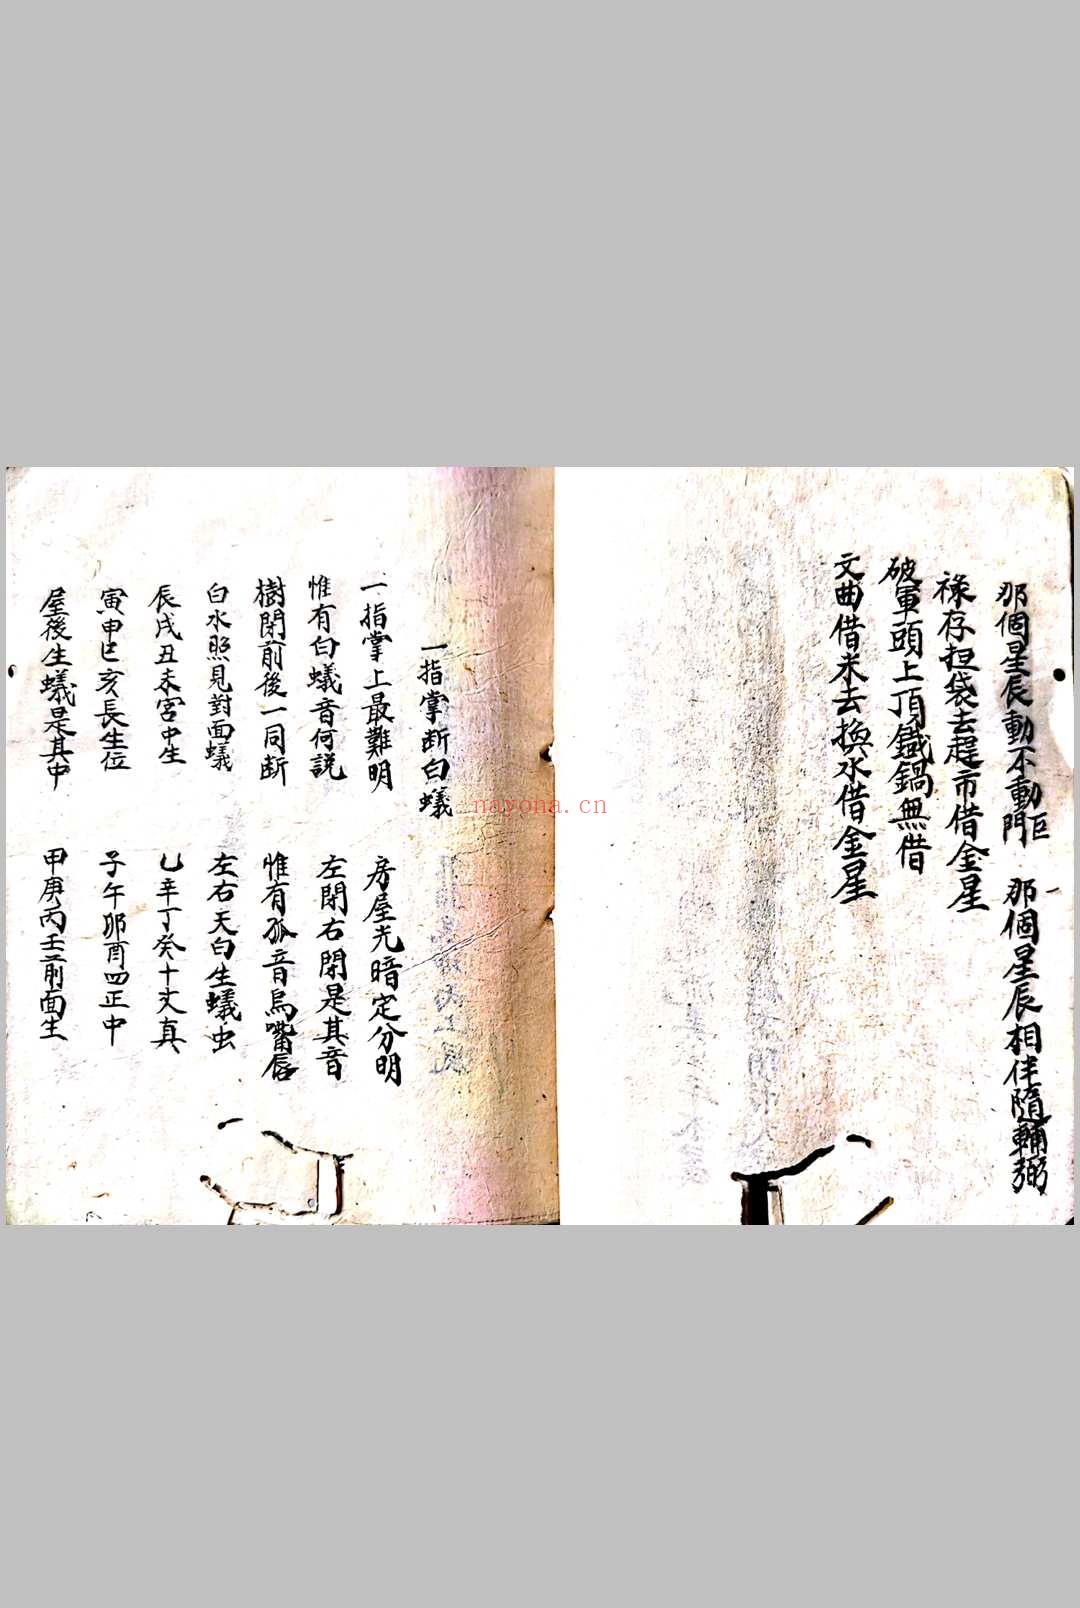 那個星辰動不動巨門 那個星辰相伴隨輔弼
祿存担袋去趕市借金星
破軍頭上頂鐵鍋無借
文曲借米去換水借金星
一指掌断白蟻
一指掌上最難明 房屋光暗定分明
惟有白蟻音何説 左閉右閉是其音
樹閉前後一同断 惟有孤音鳥嘴唇
白水照見對面蟻 左右天白生蟻虫
辰戌丑未宮中生 乙辛丁癸十丈真
寅申巳亥長生位 子午卯酉四正中
屋後生蟻是其中 甲庚丙壬前面生
nayona.cn